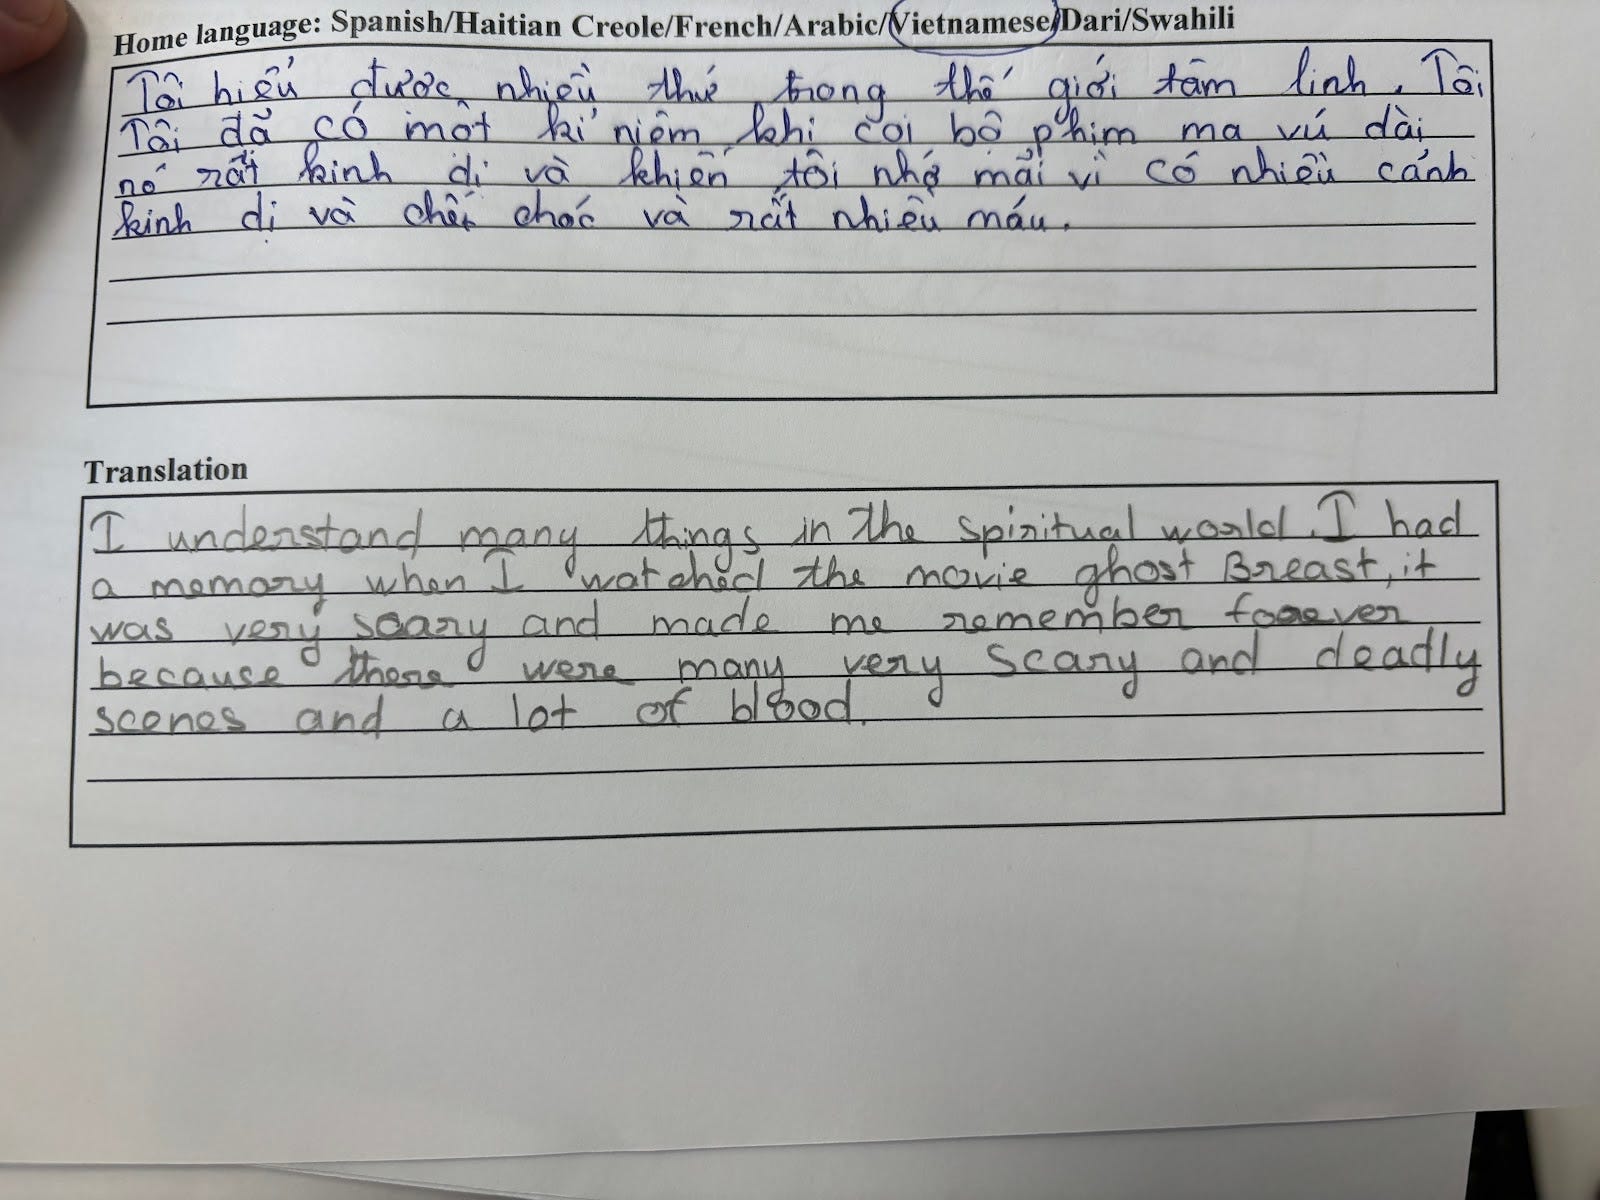 Home language: Spanish/Haitian Creole/French/Arabic/Vietnamese/Dari/Swahili
Tôi hiểu được nhiều thứ trong thế giới tâm linh. Tôi
Tôi đã có một kỉ niệm khi coi bộ phim ma vú dài
nó rất kinh dị và khiến tôi nhớ mãi vì có nhiều cảnh
kinh dị và chết chóc và rất nhiều máu.
Translation
I understand many things in the spiritual world. I had
a memory when I watched the movie ghost Breast, it
was very scary and made me remember forever
because there were many very scary and deadly
scenes and a lot of blood.